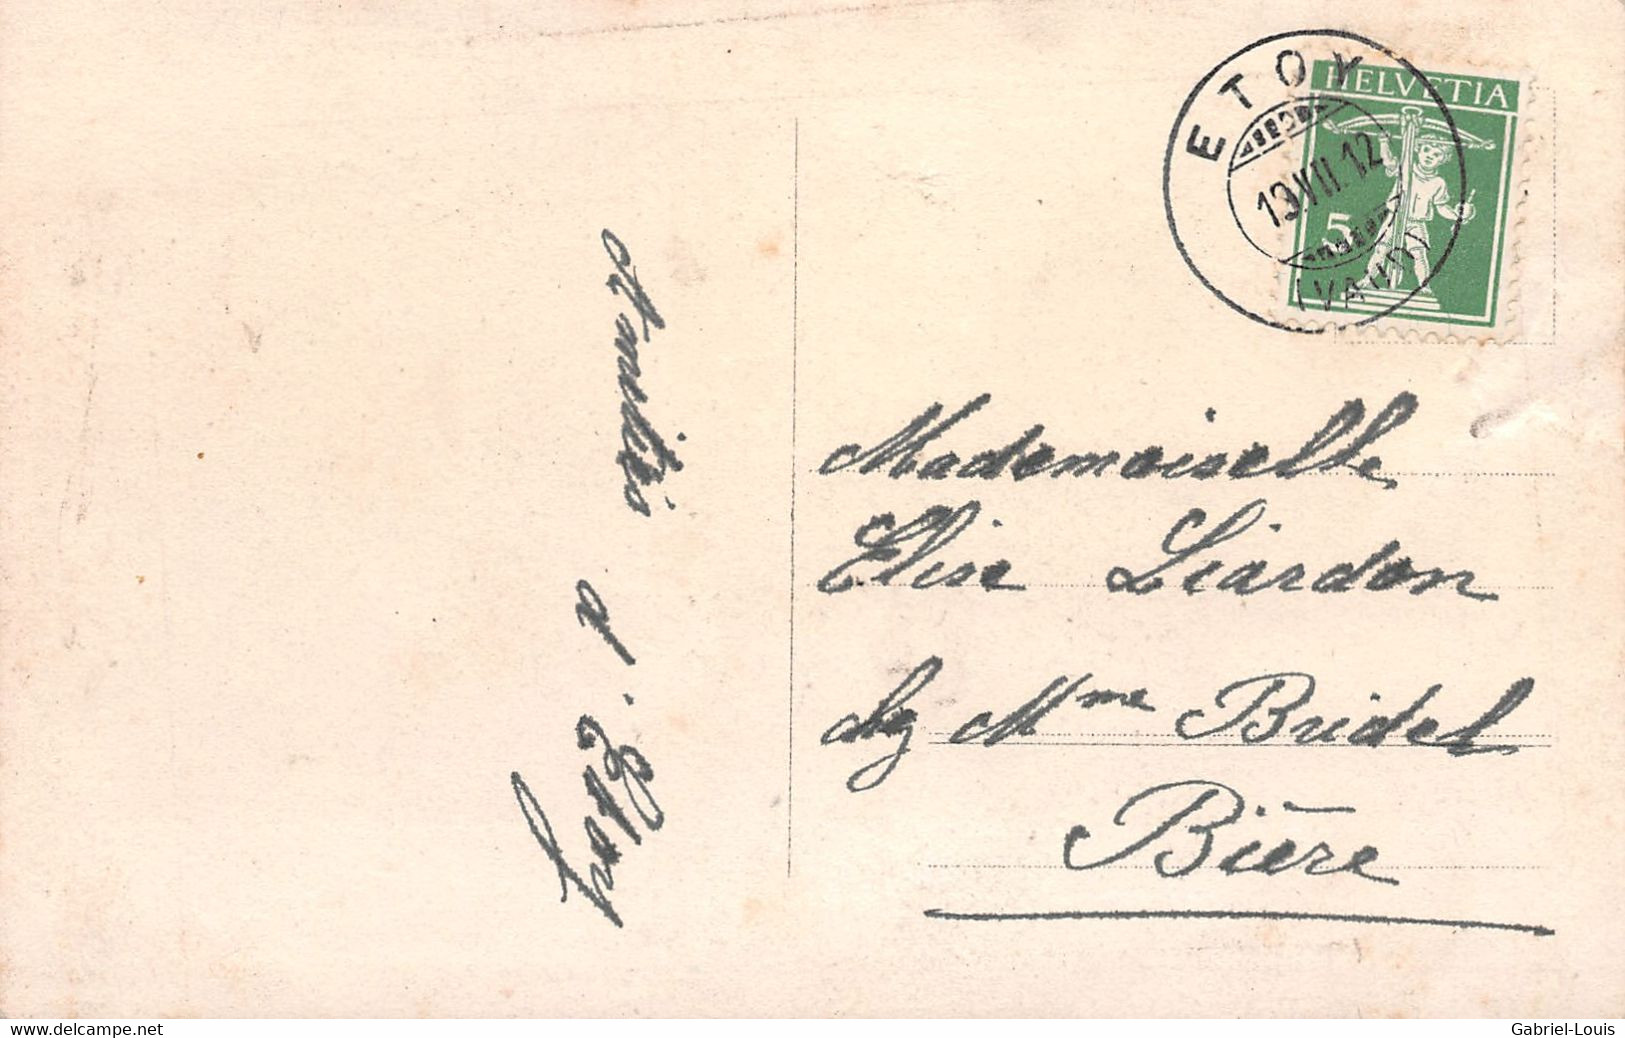 ETOY
13 VII. 12
(VAUD)
HELVETIA
5
Amitiés
d'Etoy
Mademoiselle
Elise Liardon
chz Mme Bridel
Bière
www.delcampe.net
Gabriel-Louis